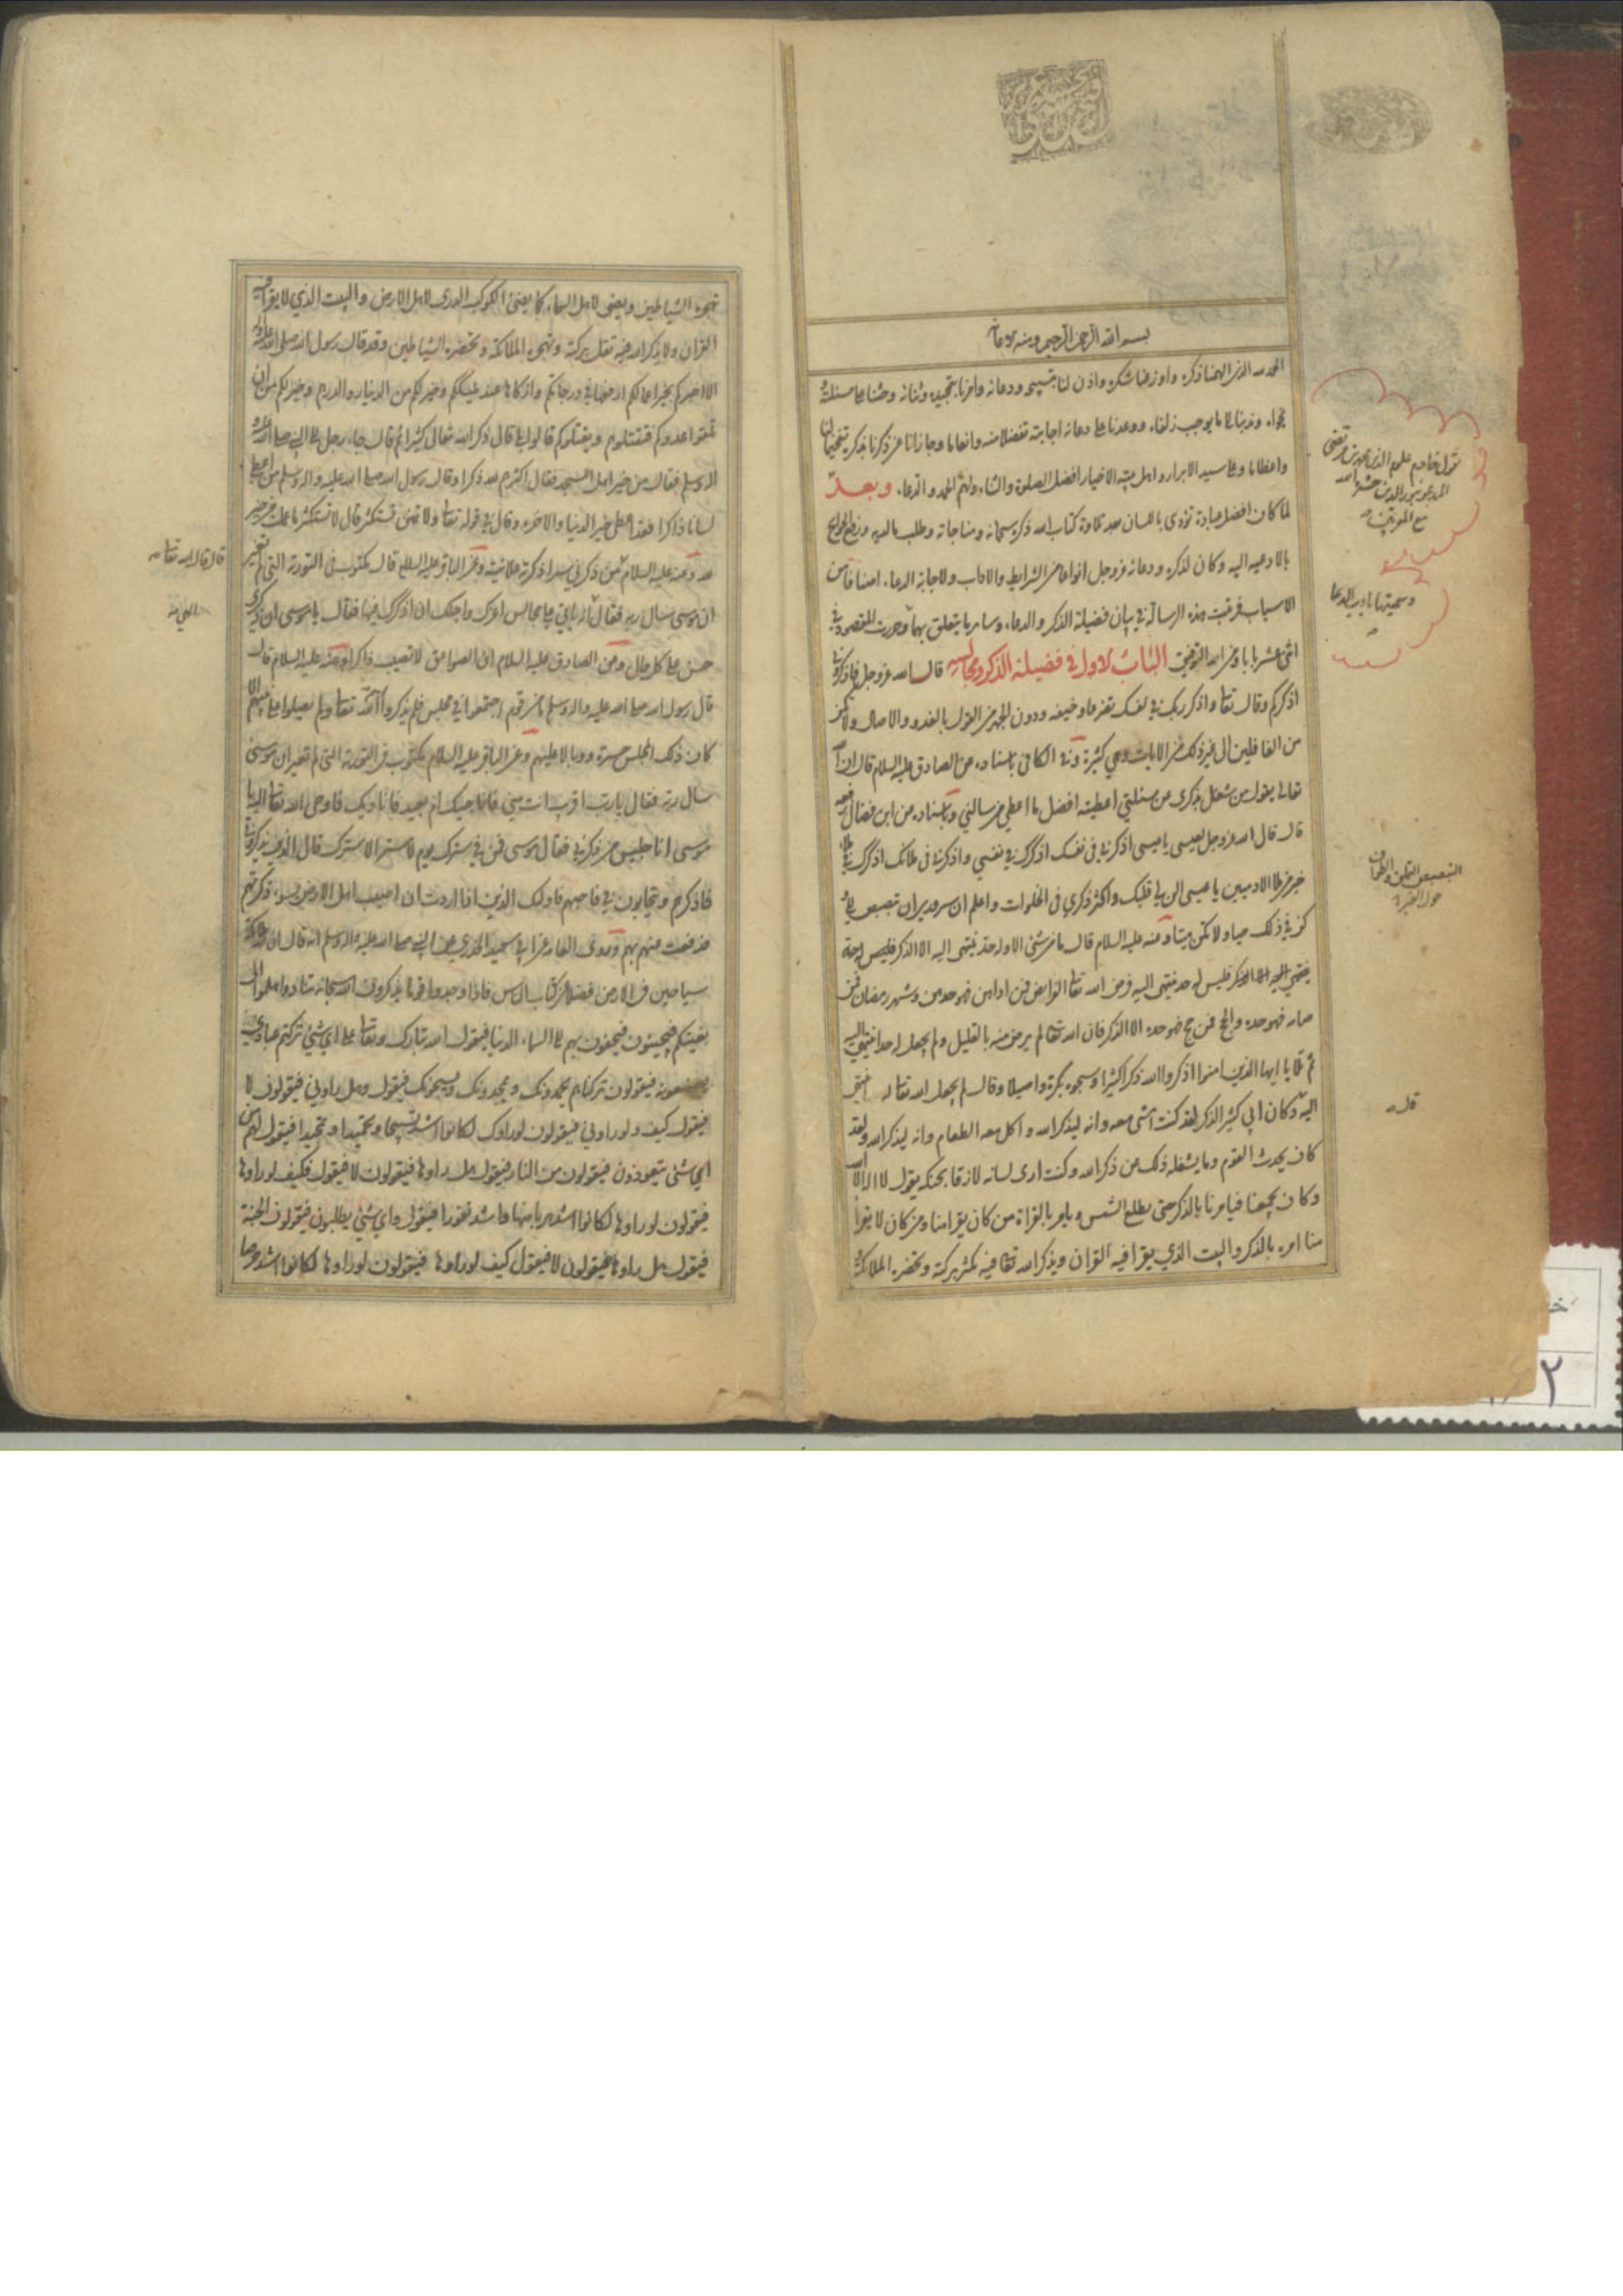 بسم الله الرحمن الرحيم وبه
الحمد لله الذي الهمنا ذكره واوزعنا شكره واذن لنا بتسبيحه ودعائه وامرنا بتمجيده وثنائه وحثنا على مسئلته
وندبنا الى ما يوجب زلفاه ووعدنا على دعائه اجابته تفضلا منه وانعاما وجازانا عن ذكرنا بذكره تفخيما لنا
واعظاما وعلى سيد الابرار واهل بيته الاخيار افضل الصلوة والثناء ولهم الحمد والدعاء وبعد
لما كان افضل عبادة تؤدى باللسان بعد تلاوة كتاب الله ذكره سبحانه ومناجاته وطلب ما لديه ورفع الحوائج
بالادعيه اليه وكان لذكره ودعائه عزوجل انواعا من الشرايط والاداب ولاجابة الدعاء اصنافا من
الاسباب فرتبت هذه الرسالة في بيان فضيلة الذكر والدعاء وساير ما يتعلق بهما وحررت المقصود في
اثنى عشر بابا ومن الله التوفيق الباب الاول في فضيلة الذكر ومجالسه قال الله عزوجل فاذكروني
اذكركم وقال تعا واذكر ربك في نفسك تضرعا وخيفه ودون الجهر من القول بالغدو والاصال ولا تكن
من الغافلين الى غير ذلك من الايات وهي كثيرة وفي الكافي باسناده عن الصادق عليه السلام قال ان الله
تعالى يقول من شغل بذكرى عن مسئلتي اعطيته افضل ما اعطي من سالني وباسناده عن ابن فضال رفعه
قال قال الله عزوجل لعيسى يا عيسى اذكرني في نفسك اذكرك في نفسي واذكرني في ملائك اذكرك في ملاء
خير من ملاء الادميين يا عيسى الن لي قلبك واكثر ذكري في الخلوات واعلم ان سروري ان تبصبص الي
وكن في ذلك حيا ولا تكن ميتا وعنه عليه السلام قال ما من شئ الا وله حد ينتهى اليه الا الذكر فليس له حد
ينتهي اليه فرض الله تعا الفرايض فمن اداهن فهو حدهن وشهر رمضان فمن
صامه فهو حده والحج فمن حج فهو حده الا الذكر فان الله تعا لم يرض منه بالقليل ولم يجعل له حدا ينتهي اليه
ثم تلا يا ايها الذين امنوا اذكروا الله ذكرا كثيرا وسبحوه بكرة واصيلا وقال لم يجعل الله تعا له حدا ينتهى
اليه وكان ابي كثير الذكر لقد كنت امشى معه وانه ليذكر الله واكل معه الطعام وانه ليذكر الله ولقد
كان يحدث القوم وما يشغله ذلك عن ذكر الله وكنت ارى لسانه لازقا بحنكه يقول لا اله الا الله
وكان يجمعنا فيامرنا بالذكر حتى يطلع الشمس ويامر بالقراة من كان يقرا منا ومن كان لا يقرا
منا امره بالذكر والبيت الذي يقرا فيه القران ويذكر الله تعا فيه تكثر بركته وتحضره الملائكة
يقول خادم علوم الدين محمد بن مرتضى
المدعو بنور الدين حشره الله
مع المقربين
وسميتها باداب الدعا
التبصبص التملق
قال
تهجره الشياطين ويضئ لاهل السماء كما يضئ الكوكب الدرى لاهل الارض والبيت الذي لا يقرا فيه
القران ولا يذكر الله فيه تقل بركته وتهجره الملائكة وتحضره الشياطين وقد قال رسول الله صلى الله عليه واله
الا اخبركم بخير اعمالكم ارفعها في درجاتكم وازكاها عند مليككم وخير لكم من الدينار والدرهم وخير لكم من ان
تلقوا عدوكم فتقتلوهم ويقتلوكم قالوا بلى قال ذكر الله تعالى كثيرا ثم قال جاء رجل الى النبي صلى الله عليه
واله وسلم فقال من خير اهل المسجد فقال اكثرهم لله ذكرا وقال رسول الله صلى الله عليه واله وسلم من اعطى
لسانا ذاكرا فقد اعطى خير الدنيا والاخرة وقال في قوله تعا ولا تمنن تستكثر قال لا تستكثر ما عملت من خير
لله وعنه عليه السلام من ذكرني سرا ذكرته علانيته وعن الباقر عليه السلام قال مكتوب في التورية التي لم تغير
ان موسى سال ربه فقال انه ياتي علي مجالس اعزك واجلك ان اذكرك فيها فقال يا موسى ان ذكري
حسن على كل حال وعن الصادق عليه السلام ان الصواعق لا تصيب ذاكرا وعنه عليه السلام قال
قال رسول الله صلى الله عليه واله وسلم ما من قوم اجتمعوا في مجلس فلم يذكروا الله تعا ولم يصلوا على نبيهم الا
كان ذلك المجلس حسرة ووبالا عليهم وعن الباقر عليه السلام مكتوب في التورية التي لم تغير ان موسى
سال ربه فقال يا رب اقريب انت مني فاناجيك ام بعيد فاناديك فاوحى الله تعا اليه يا
موسى انا جليس من ذكرني فقال موسى فمن في سترك يوم لا ستر الا سترك قال الذين يذكرونني
فاذكرهم ويتحابون في فاحبهم فاولئك الذين اذا اردت ان اصيب اهل الارض بسوء ذكرتهم
فدفعت عنهم بهم وروى العامة عن ابي سعيد الخدري عن النبي صلى الله عليه واله وسلم انه قال ان لله ملائكة
سياحين في الارض فضلا عن كتاب الناس فاذا وجدوا قوما يذكرون الله سبحانه تنادوا هلموا الى
بغيتكم فيجيئون فيحفون بهم الى السماء الدنيا فيقول الله تبارك وتعا على اي شئ تركتم عبادي
يصنعونه فيقولون تركناهم يحمدونك ويمجدونك ويسبحونك فيقول وهل راوني فيقولون لا
فيقول كيف ولو راوني فيقولون لو راوك لكانوا اشد تسبيحا وتحميدا وتمجيدا فيقول لهم من
اي شئ يتعوذون فيقولون من النار فيقول هل راوها فيقولون لا فيقول فكيف لو راوها
فيقولون لو راوها لكانوا اشد هربا منها واشد نفورا فيقول واي شئ يطلبون فيقولون الجنة
فيقول هل راوها فيقولون لا فيقول كيف لو راوها فيقولون لو راوها لكانوا اشد حرصا
قال قال الله تعا
الهي